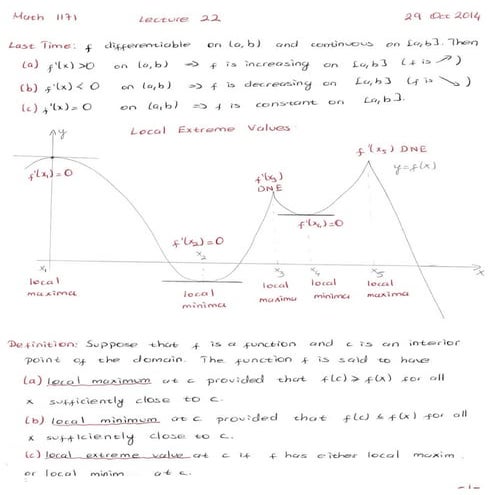 Math 1171 Lecture 22 29 Oct 2014
Last Time: f differentiable on (a,b) and continuous on [a,b]. Then
(a) f'(x) > 0 on (a,b) ⇒ f is increasing on [a,b] (f is ↗)
(b) f'(x) < 0 on (a,b) ⇒ f is decreasing on [a,b] (f is ↘)
(c) f'(x) = 0 on (a,b) ⇒ f is constant on [a,b].
Local Extreme Values:
y
f'(x₁) = 0
f'(x₂) = 0
f'(x₃) DNE
f'(x₄) = 0
f'(x₅) DNE
y = f(x)
x₁ x₂ x₃ x₄ x₅ x
local maxima
local minima
local maxima
local minima
local maxima
Definition: Suppose that f is a function and c is an interior
point of the domain. The function f is said to have
(a) local maximum at c provided that f(c) ≥ f(x) for all
x sufficiently close to c.
(b) local minimum at c provided that f(c) ≤ f(x) for all
x sufficiently close to c.
(c) local extreme value at c if f has either local maxim.
or local minim at c.